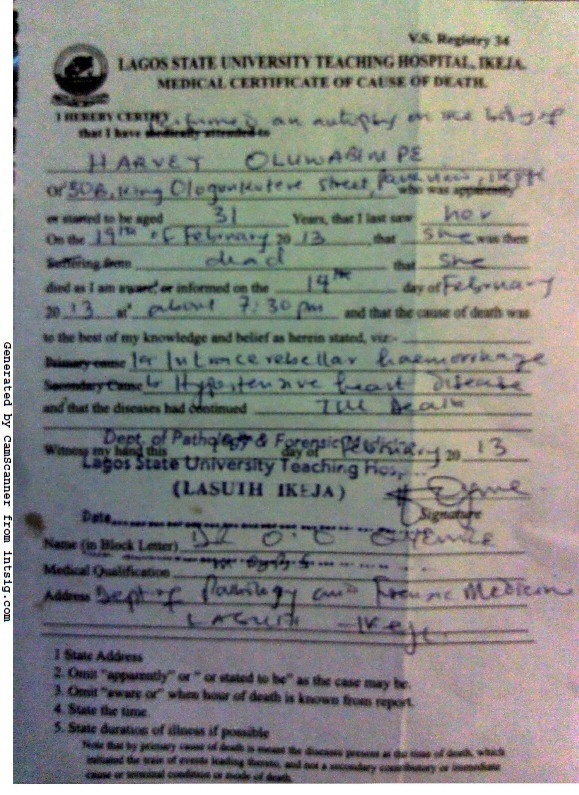 V.S. Registry 34
LAGOS STATE UNIVERSITY TEACHING HOSPITAL, IKEJA.
MEDICAL CERTIFICATE OF CAUSE OF DEATH.
I HEREBY CERTIFY an autopsy on the body of
that I have medically attended to
HARVEY
Of 50B, King street, who was apparently
or stated to be aged 31 Years, that I last saw her
On the 19th of February 20 13 that she was then
Suffering from dead that she
died as I am aware or informed on the 14th day of February
20 13 at about 7:30 pm and that the cause of death was
to the best of my knowledge and belief as herein stated, viz:-
Primary cause 1a Intracerebellar haemorrhage
Secondary Cause b Hypertensive heart disease
and that the diseases had continued Till Death
Dept. of Pathology & Forensic Medicine
Witness my hand this day of February 20 13
Lagos State University Teaching Hosp
(LASUTH IKEJA)
Signature
Date
Name (in Block Letter) Dr O.O
Medical Qualification
Address Dept of Pathology and Forensic Medicine
LASUTH - Ikeja.
1 State Address
2. Omit "apparently" or " or stated to be" as the case may be.
3. Omit "aware or" when hour of death is known from report.
4. State the time.
5. State duration of illness if possible
Note that by primary cause of death is meant the diseases present at the time of death, which
initiated the train of events leading thereto, and not a secondary contributory or immediate
cause or terminal condition or mode of death.
Generated by CamScanner from intsig.com